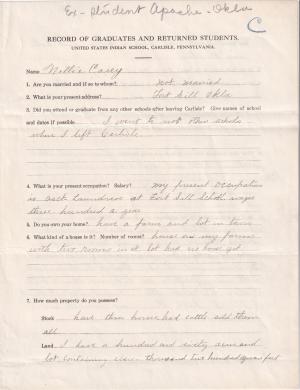 Ex-Student Apache-Okla
C
RECORD OF GRADUATES AND RETURNED STUDENTS.
UNITED STATES INDIAN SCHOOL, CARLISLE, PENNSYLVANIA.
Name Nellie Carey
1. Are you married and if so to whom? not married
2. What is your present address? Fort Sill Okla
3. Did you attend or graduate from any other schools after leaving Carlisle? Give names of school
and dates if possible. I went to not other schols
when I lift Carlisle
4. What is your present occupation? Salary? my present Occupation
is asst Laundress at Fort Sill School wages
three hundred a year
5. Do you own your home? have a farm and lot in town
6. What kind of a house is it? Number of rooms? house on my farm
with two rooms in it lot had no house yet
7. How much property do you possess?
Stock have three horses had cattle sold them
all
Land I have a hundred and sixty acres and
lot containing seven thousand two hundred square feet